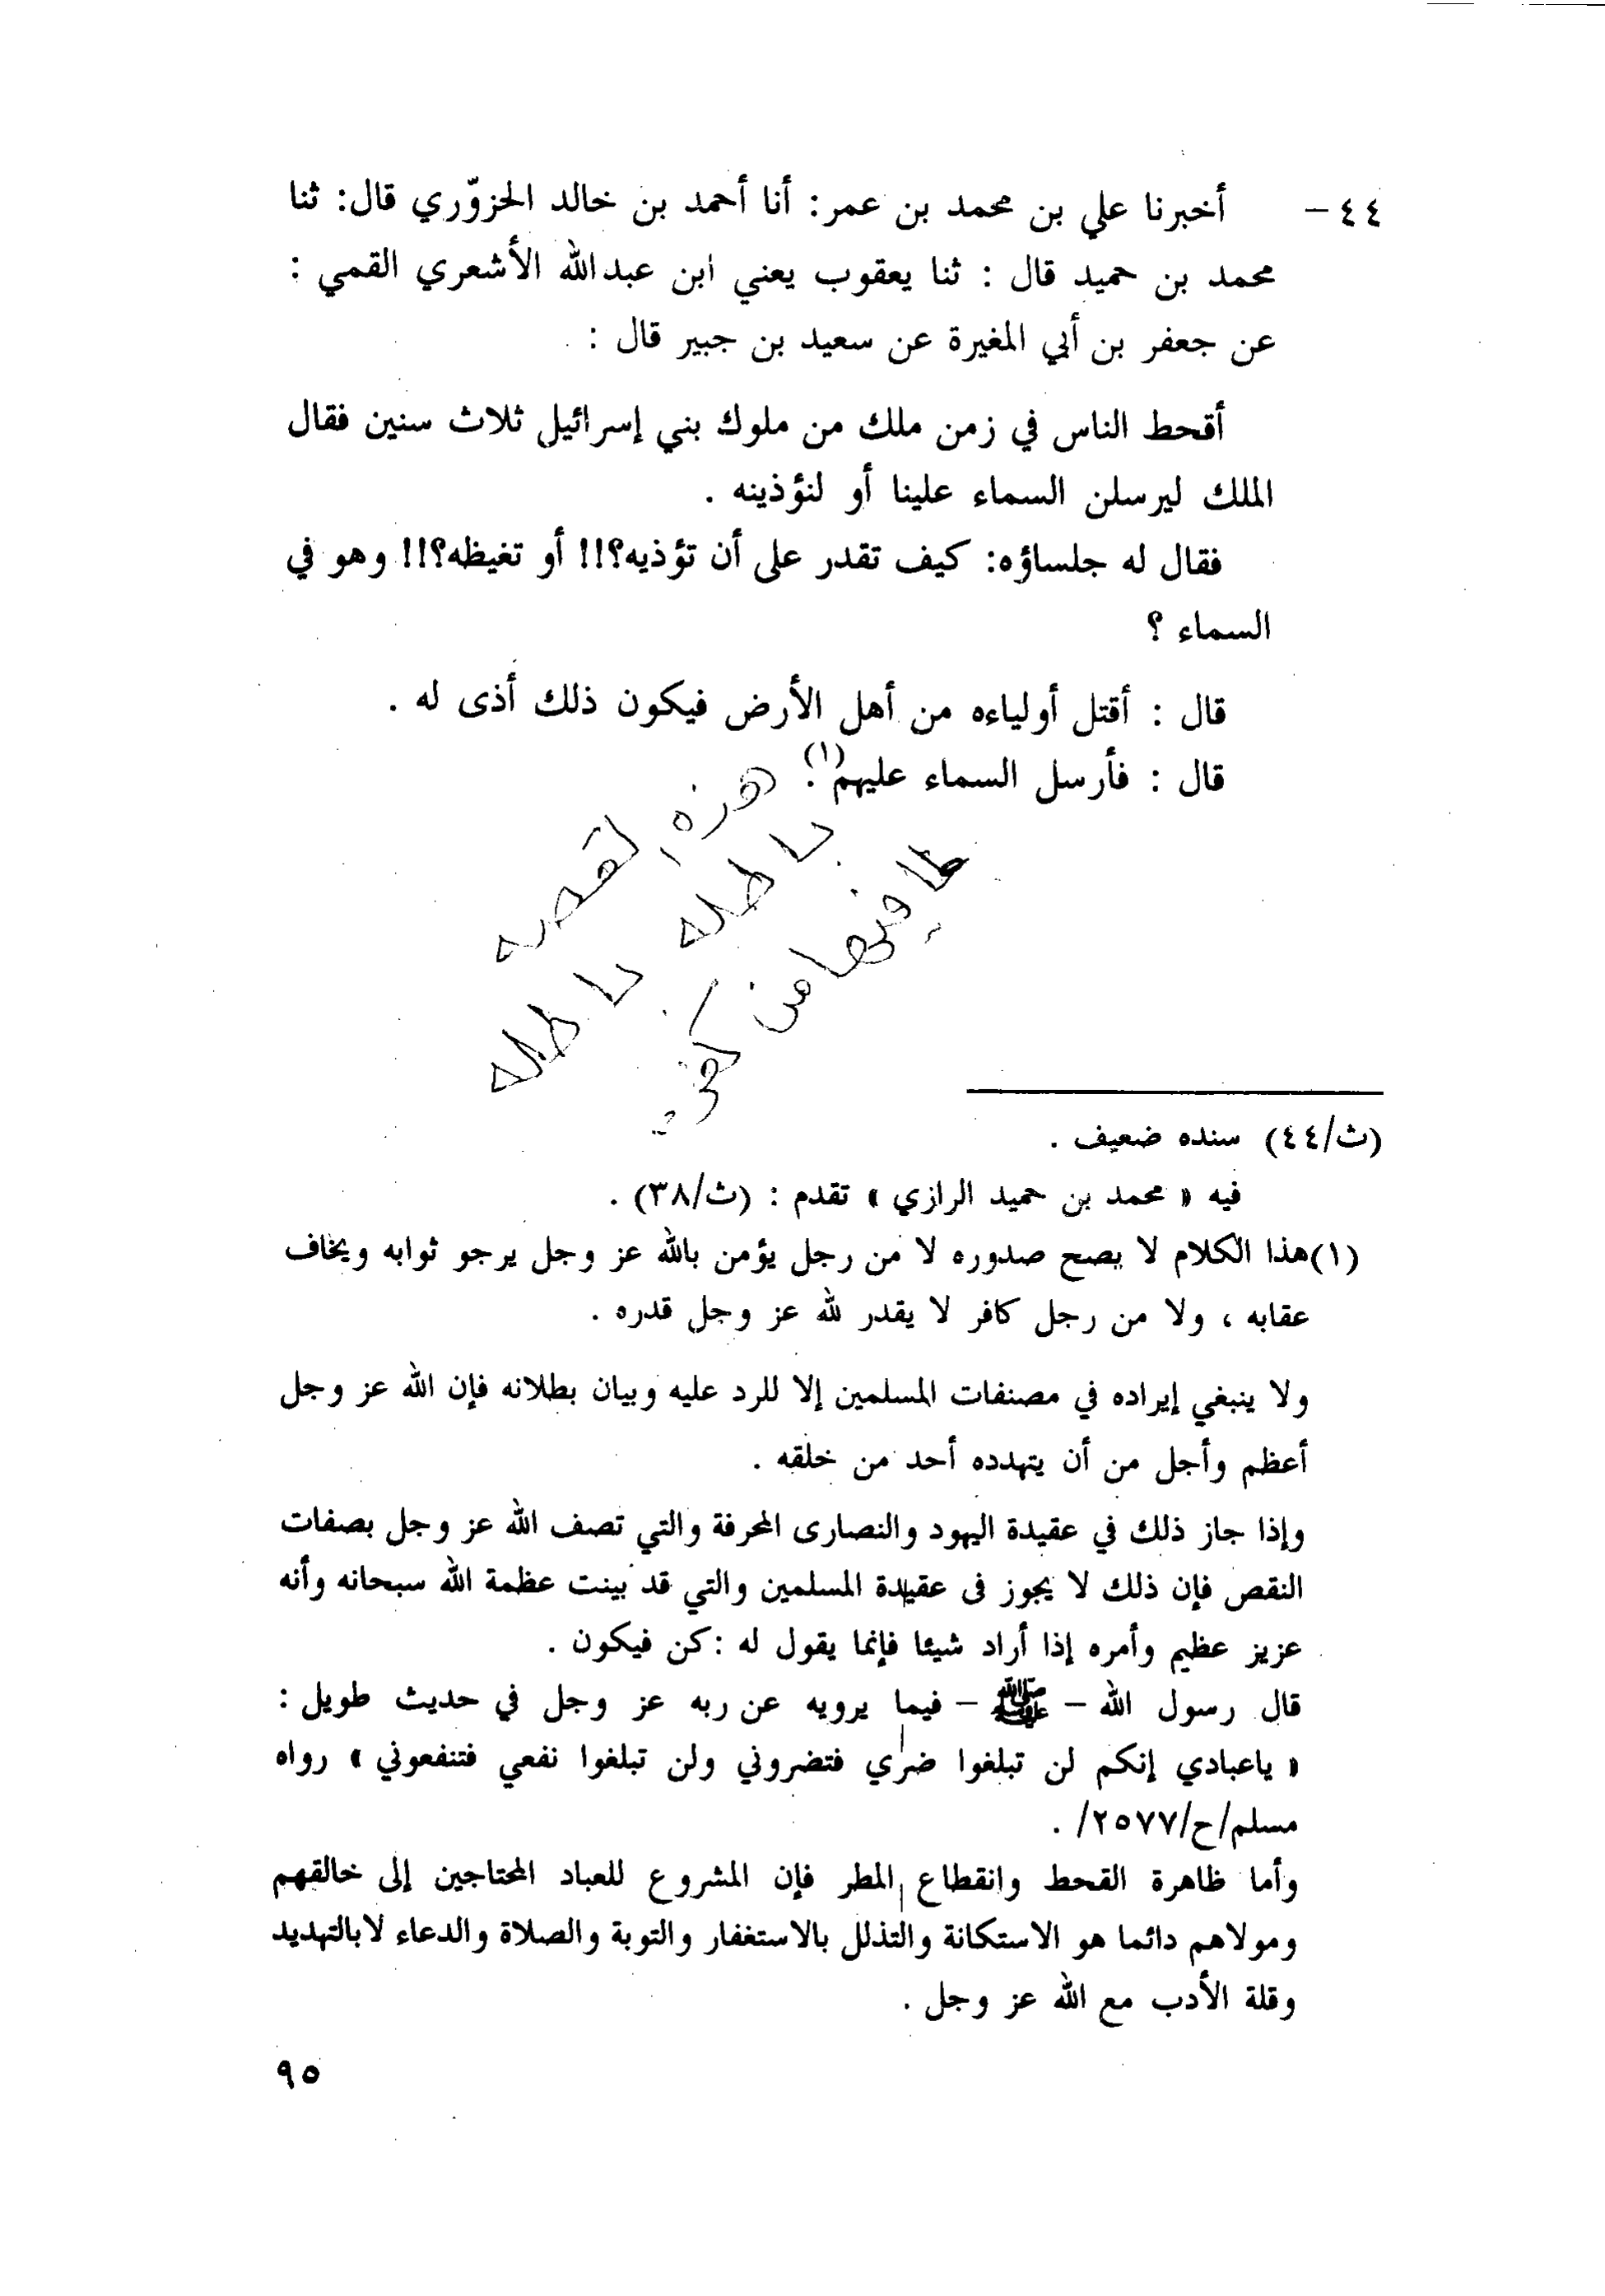 ٤٤ – أخبرنا علي بن محمد بن عمر: أنا أحمد بن خالد الحزوّري قال: ثنا
محمد بن حميد قال : ثنا يعقوب يعني ابن عبدالله الأشعري القمي :
عن جعفر بن أبي المغيرة عن سعيد بن جبير قال :
أقحط الناس في زمن ملك من ملوك بني إسرائيل ثلاث سنين فقال
الملك ليرسلن السماء علينا أو لنؤذينه .
فقال له جلساؤه: كيف تقدر على أن تؤذيه؟!!! أو تغيظه؟!!! وهو في
السماء ؟
قال : أقتل أولياءه من أهل الأرض فيكون ذلك أذى له .
قال : فأرسل السماء عليهم(١).
هذه القصه
باطله باطله
لما فيها من كفر
(ث/٤٤) سنده ضعيف .
فيه « محمد بن حميد الرازي » تقدم : (ث/٣٨) .
(١) هذا الكلام لا يصح صدوره لا من رجل يؤمن بالله عز وجل يرجو ثوابه ويخاف
عقابه ، ولا من رجل كافر لا يقدر لله عز وجل قدره .
ولا ينبغي إيراده في مصنفات المسلمين إلا للرد عليه وبيان بطلانه فإن الله عز وجل
أعظم وأجل من أن يتهدده أحد من خلقه .
وإذا جاز ذلك في عقيدة اليهود والنصارى المحرفة والتي تصف الله عز وجل بصفات
النقص فإن ذلك لا يجوز فى عقيدة المسلمين والتي قد بينت عظمة الله سبحانه وأنه
عزيز عظيم وأمره إذا أراد شيئا فإنما يقول له : كن فيكون .
قال رسول الله – ﷺ – فيما يرويه عن ربه عز وجل في حديث طويل :
« ياعبادي إنكم لن تبلغوا ضري فتضروني ولن تبلغوا نفعي فتنفعوني » رواه
مسلم/ح/٢٥٧٧/ .
وأما ظاهرة القحط وانقطاع المطر فإن المشروع للعباد المحتاجين إلى خالقهم
ومولاهم دائما هو الاستكانة والتذلل بالاستغفار والتوبة والصلاة والدعاء لا بالتهديد
وقلة الأدب مع الله عز وجل .
٩٥